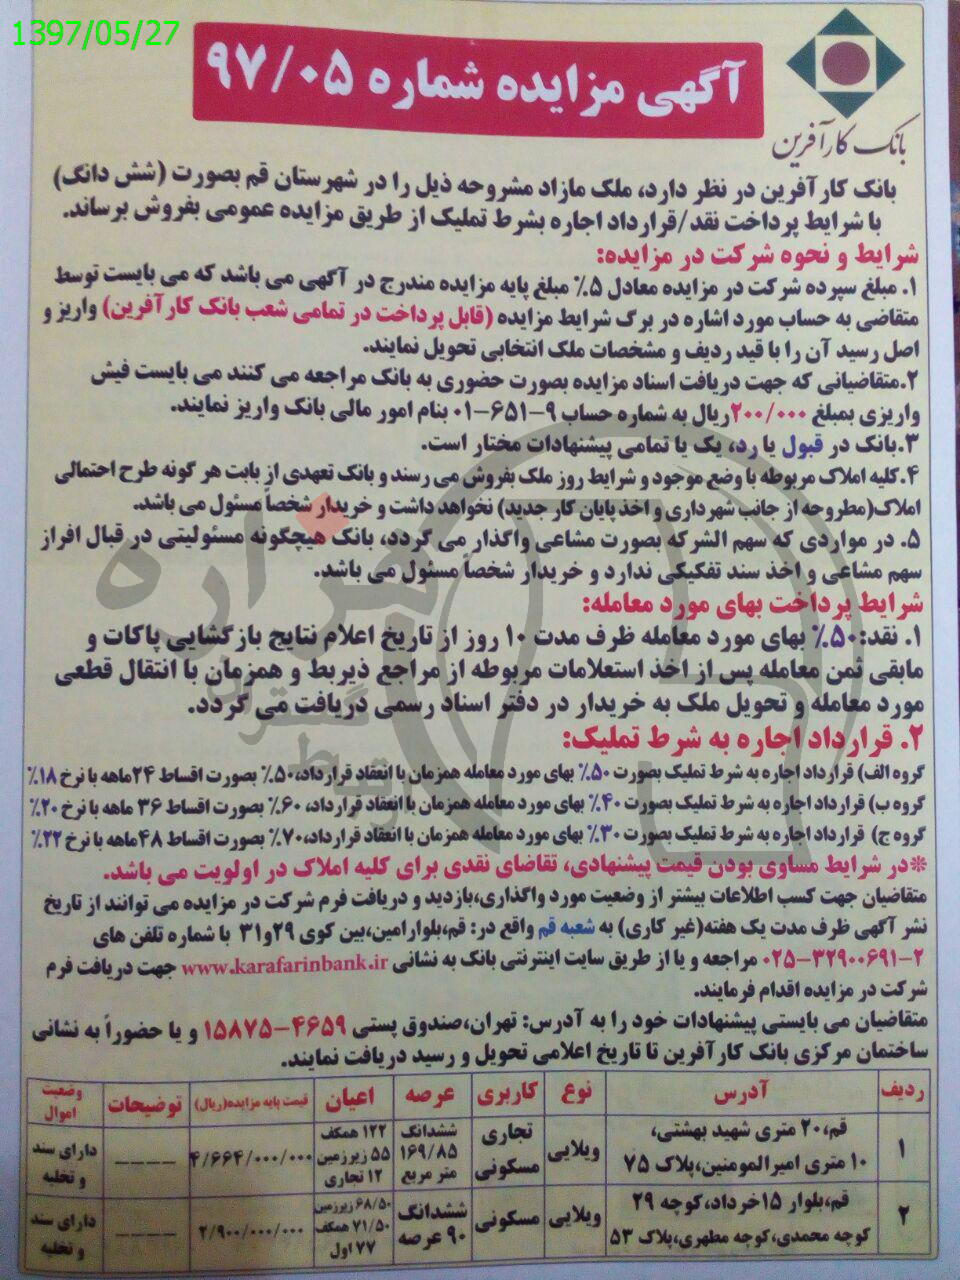 1397/05/27
آگهی مزایده شماره ۹۷/۰۵
بانک کارآفرین
بانک کارآفرین در نظر دارد، ملک مازاد مشروحه ذیل را در شهرستان قم بصورت (شش دانگ)
با شرایط پرداخت نقد/قرارداد اجاره بشرط تملیک از طریق مزایده عمومی بفروش برساند.
شرایط و نحوه شرکت در مزایده:
۱. مبلغ سپرده شرکت در مزایده معادل ۵٪ مبلغ پایه مزایده مندرج در آگهی می باشد که می بایست توسط
متقاضی به حساب مورد اشاره در برگ شرایط مزایده (قابل پرداخت در تمامی شعب بانک کارآفرین) واریز و
اصل رسید آن را با قید ردیف و مشخصات ملک انتخابی تحویل نمایند.
۲.متقاضیانی که جهت دریافت اسناد مزایده بصورت حضوری به بانک مراجعه می کنند می بایست فیش
واریزی بمبلغ ۲۰۰/۰۰۰ریال به شماره حساب ۹-۶۵۱-۰۱ بنام امور مالی بانک واریز نمایند.
۳.بانک در قبول یا رد، یک یا تمامی پیشنهادات مختار است.
۴.کلیه املاک مربوطه با وضع موجود و شرایط روز ملک بفروش می رسند و بانک تعهدی از بابت هر گونه طرح احتمالی
املاک(مطروحه از جانب شهرداری و اخذ پایان کار جدید) نخواهد داشت و خریدار شخصاً مسئول می باشد.
۵. در مواردی که سهم الشرکه بصورت مشاعی واگذار می گردد، بانک هیچگونه مسئولیتی در قبال افراز
سهم مشاعی و اخذ سند تفکیکی ندارد و خریدار شخصاً مسئول می باشد.
شرایط پرداخت بهای مورد معامله:
۱. نقد:۵۰٪ بهای مورد معامله ظرف مدت ۱۰ روز از تاریخ اعلام نتایج بازگشایی پاکات و
مابقی ثمن معامله پس از اخذ استعلامات مربوطه از مراجع ذیربط و همزمان با انتقال قطعی
مورد معامله و تحویل ملک به خریدار در دفتر اسناد رسمی دریافت می گردد.
۲. قرارداد اجاره به شرط تملیک:
گروه الف) قرارداد اجاره به شرط تملیک بصورت ۵۰٪ بهای مورد معامله همزمان با انعقاد قرارداد،۵۰٪ بصورت اقساط ۲۴ماهه با نرخ ۱۸٪
گروه ب) قرارداد اجاره به شرط تملیک بصورت ۴۰٪ بهای مورد معامله همزمان با انعقاد قرارداد، ۶۰٪ بصورت اقساط ۳۶ ماهه با نرخ ۲۰٪
گروه ج) قرارداد اجاره به شرط تملیک بصورت ۳۰٪ بهای مورد معامله همزمان با انعقاد قرارداد،۷۰٪ بصورت اقساط ۴۸ماهه با نرخ ۲۲٪
*در شرایط مساوی بودن قیمت پیشنهادی، تقاضای نقدی برای کلیه املاک در اولویت می باشد.
متقاضیان جهت کسب اطلاعات بیشتر از وضعیت مورد واگذاری،بازدید و دریافت فرم شرکت در مزایده می توانند از تاریخ
نشر آگهی ظرف مدت یک هفته(غیر کاری) به شعبه قم واقع در: قم،بلوارامین،بین کوی ۲۹و۳۱ با شماره تلفن های
۰۲۵-۳۲۹۰۰۶۹۱-۲ مراجعه و یا از طریق سایت اینترنتی بانک به نشانی www.karafarinbank.ir جهت دریافت فرم
شرکت در مزایده اقدام فرمایند.
متقاضیان می بایستی پیشنهادات خود را به آدرس: تهران،صندوق پستی ۴۶۵۹-۱۵۸۷۵ و یا حضوراً به نشانی
ساختمان مرکزی بانک کارآفرین تا تاریخ اعلامی تحویل و رسید دریافت نمایند.
ردیف آدرس نوع کاربری عرصه اعیان قیمت پایه مزایده(ریال) توضیحات وضعیت اموال
۱ قم،۲۰ متری شهید بهشتی، ۱۰ متری امیرالمومنین،پلاک ۷۵ ویلایی تجاری مسکونی ششدانگ ۱۶۹/۸۵ متر مربع ۱۲۲ همکف ۵۵ زیرزمین ۱۲ تجاری ۴/۶۶۴/۰۰۰/۰۰۰ ---- دارای سند و تخلیه
۲ قم،بلوار ۱۵خرداد،کوچه ۲۹ کوچه محمدی،کوچه مطهری،پلاک ۵۳ ویلایی مسکونی ششدانگ ۹۰ عرصه ۶۸/۵۰ زیرزمین ۷۱/۵۰ همکف ۷۷ اول ۲/۹۰۰/۰۰۰/۰۰۰ ---- دارای سند و تخلیه
هزاره